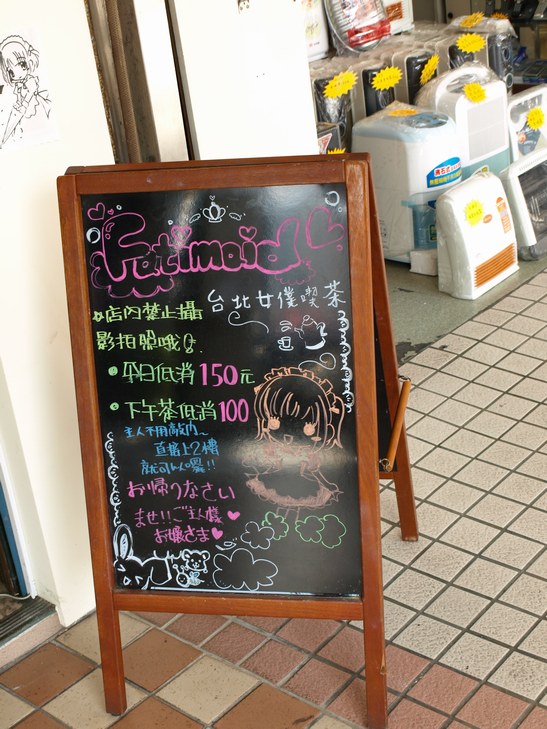 Fatimaid
台北女僕喫茶
店內禁止攝
影拍照哦
本日低消150元
下午茶低消100
主人不用敲門~
直接上2樓
就可以囉!!
お帰りなさい
ませ!!ご主人様
お嬢さま